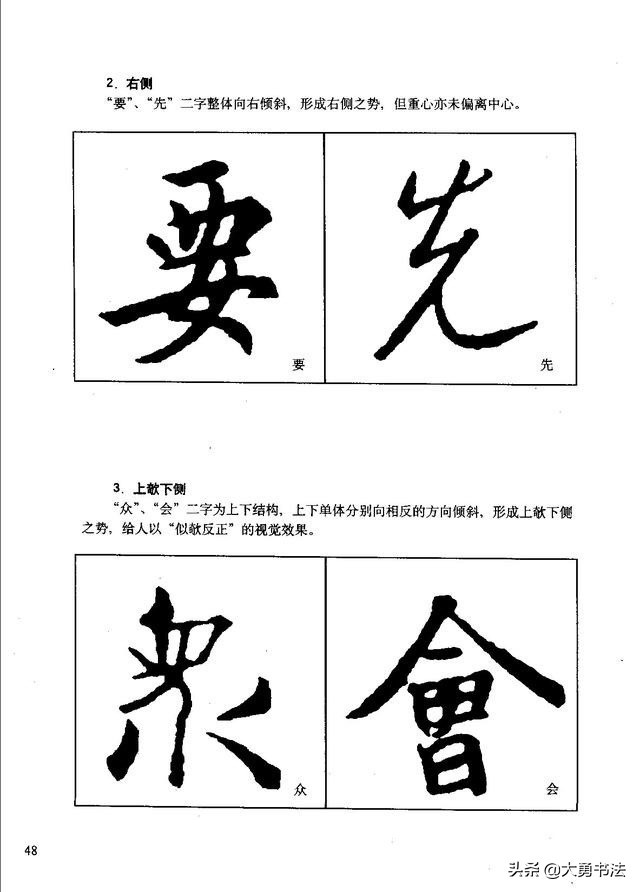 2．右侧
“要”、“先”二字整体向右倾斜，形成右侧之势，但重心亦未偏离中心。
要
先
要
先
3．上欹下侧
“众”、“会”二字为上下结构，上下单体分别向相反的方向倾斜，形成上欹下侧
之势，给人以“似欹反正”的视觉效果。
眾
會
众
会
48
头条 @大勇书法